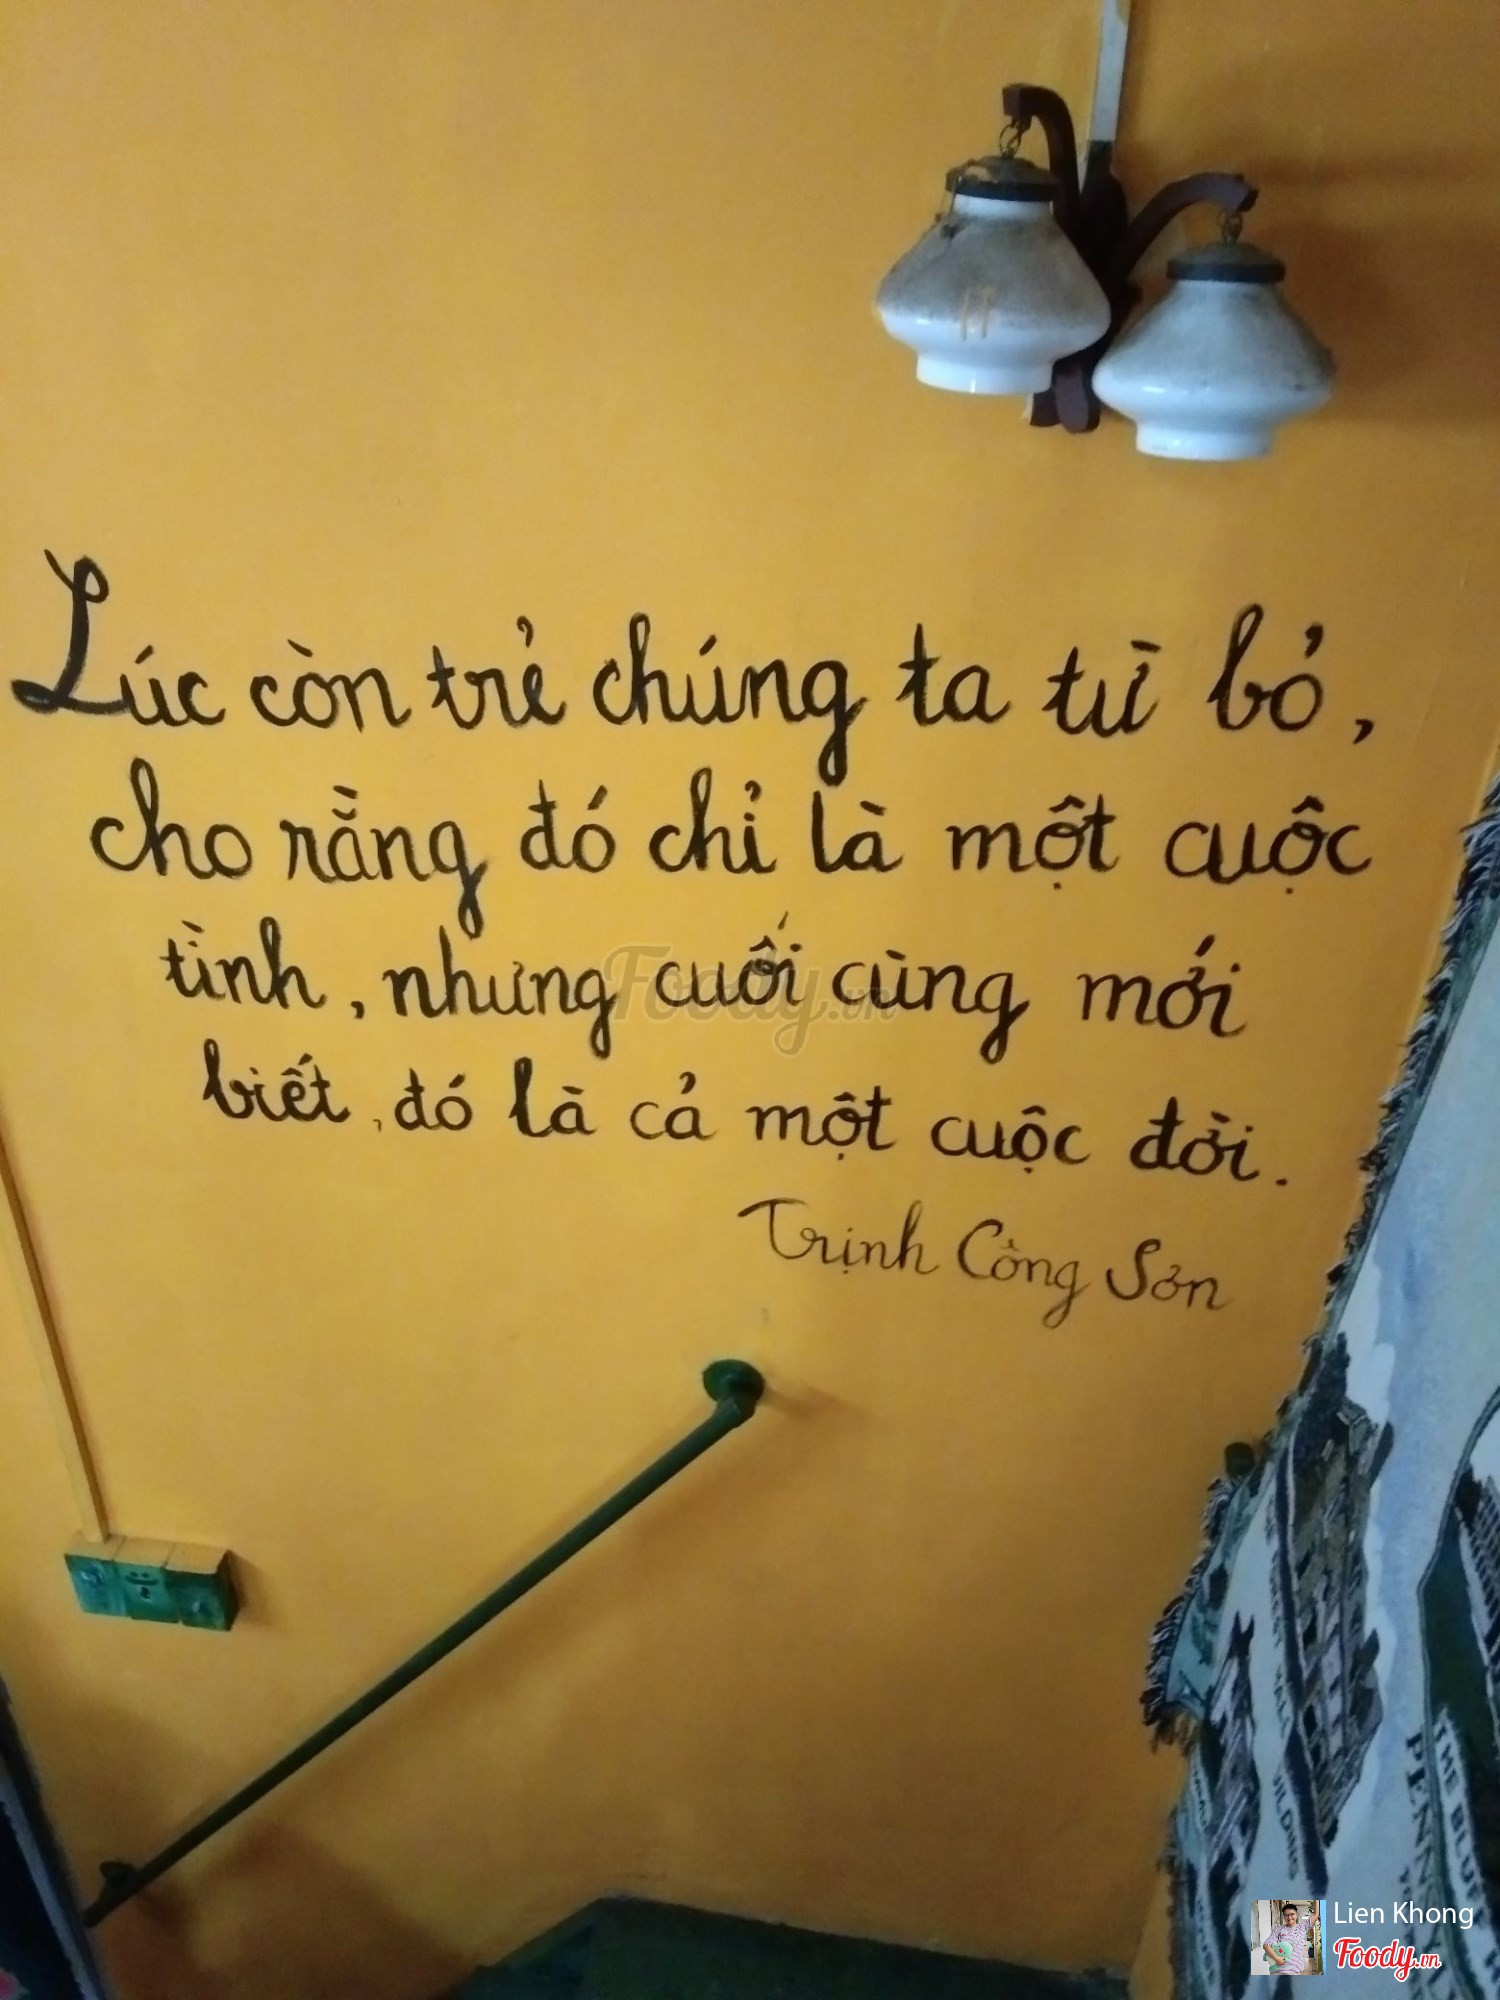 Lúc còn trẻ chúng ta từ bỏ,
cho rằng đó chỉ là một cuộc
tình, nhưng cuối cùng mới
biết, đó là cả một cuộc đời.
Trịnh Công Sơn
Foody.vn
THE BLUE
PENN
Lien Khong
Foody.vn